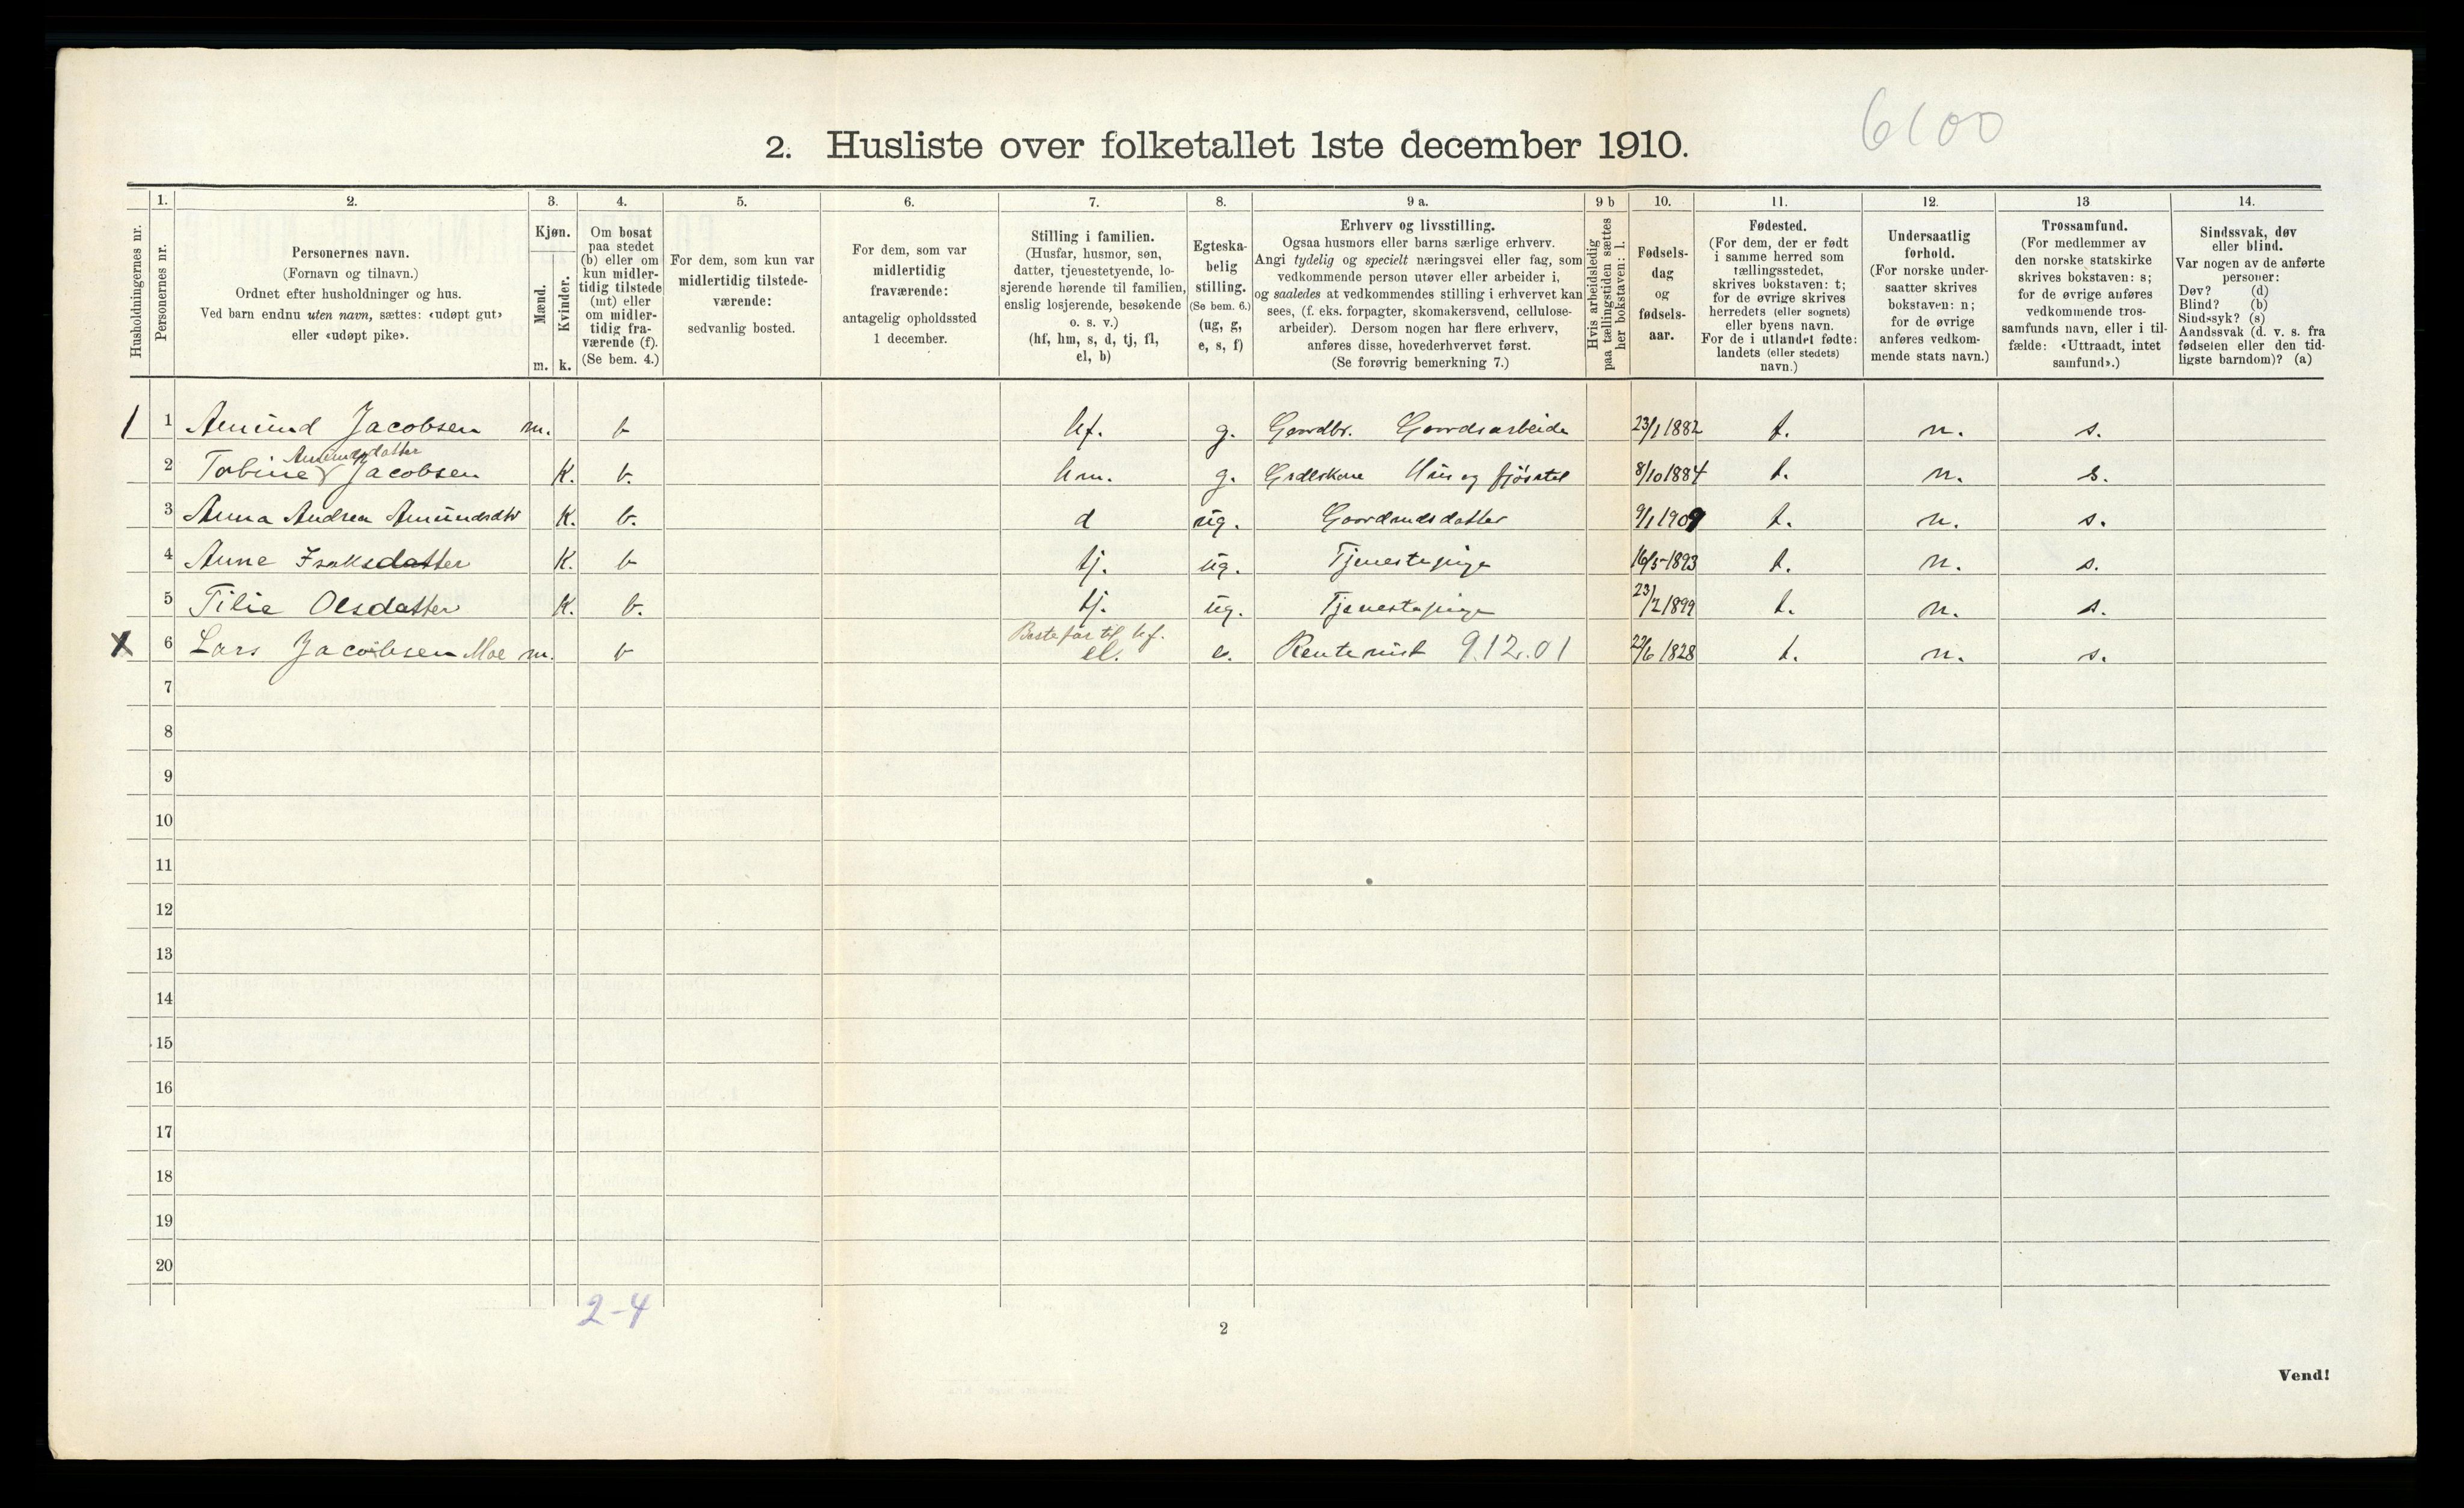 6100
2. Husliste over folketallet 1ste december 1910.
Husholdningernes nr.
1.
Personernes nr.
2.
Personernes navn.
(Fornavn og tilnavn.)
Ordnet efter husholdninger og hus.
Ved barn endnu uten navn, sættes: «udøpt gut»
eller «udøpt pike».
3.
Kjøn.
Mænd.
Kvinder.
m. k.
4.
Om bosat
paa stedet
(b) eller om
kun midler-
tidig tilstede
(mt) eller
om midler-
tidig fra-
værende (f).
(Se bem. 4.)
5.
For dem, som kun var
midlertidig tilstede-
værende:
sedvanlig bosted.
6.
For dem, som var
midlertidig
fraværende:
antagelig opholdssted
1 december.
7.
Stilling i familien.
(Husfar, husmor, søn,
datter, tjenestetyende, lo-
sjerende hørende til familien,
enslig losjerende, besøkende
o. s. v.)
(hf, hm, s, d, tj, fl,
el, b)
8.
Egteska-
belig
stilling.
(Se bem. 6.)
(ug, g,
e, s, f)
9 a.
Erhverv og livsstilling.
Ogsaa husmors eller barns særlige erhverv.
Angi tydelig og specielt næringsvei eller fag, som
vedkommende person utøver eller arbeider i,
og saaledes at vedkommendes stilling i erhvervet kan
sees, (f. eks. forpagter, skomakersvend, cellulose-
arbeider). Dersom nogen har flere erhverv,
anføres disse, hovederhvervet først.
(Se forøvrig bemerkning 7.)
9 b
Hvis arbeidsledig
paa tællingstiden sættes
her bokstaven: l.
10.
Fødsels-
dag
og
fødsels-
aar.
11.
Fødested.
(For dem, der er født
i samme herred som
tællingsstedet,
skrives bokstaven: t;
for de øvrige skrives
herredets (eller sognets)
eller byens navn.
For de i utlandet fødte:
landets (eller stedets)
navn.)
12.
Undersaatlig
forhold.
(For norske under-
saatter skrives
bokstaven: n;
for de øvrige
anføres vedkom-
mende stats navn.)
13
Trossamfund.
(For medlemmer av
den norske statskirke
skrives bokstaven: s;
for de øvrige anføres
vedkommende tros-
samfunds navn, eller i til-
fælde: «Uttraadt, intet
samfund».)
14.
Sindssvak, døv
eller blind.
Var nogen av de anførte
personer:
Døv? (d)
Blind? (b)
Sindssyk? (s)
Aandssvak (d. v. s. fra
fødselen eller den tid-
ligste barndom)? (a)
1 1 Amund Jacobsen m. b hf. g. Gaardbr. Gaardsarbeide 23/1 1882 t. n. s.
Amundsdatter
2 Tobine Jacobsen K. b. hm. g. Grdlskone Hus og fjøsstel 8/10 1884 t. n. s.
3 Anna Andrea Amundsdtr K. b. d ug. Gaardmdsdatter 9/1 1909 t. n. s.
4 Anne Isaksdatter K. b tj. ug. Tjenestepige 16/5 1893 t. n. s.
5 Tilie Olsdatter K. b. tj. ug. Tjenestepige 23/2 1899 t. n. s.
Bestefar til hf.
X 6 Lars Jacobsen Moe m. b el. e. Rentenist 9.12.01 22/6 1828 t. n. s.
7
8
9
10
11
12
13
14
15
16
17
18
19
20
2-4
2
Vend!